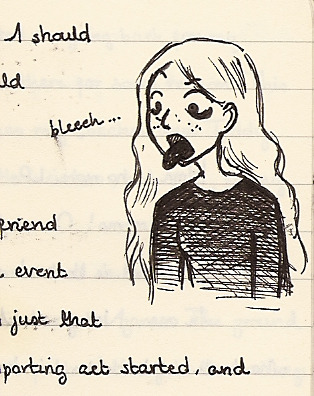 I should
ld
bleech...
friend
event
just that
parting act started, and